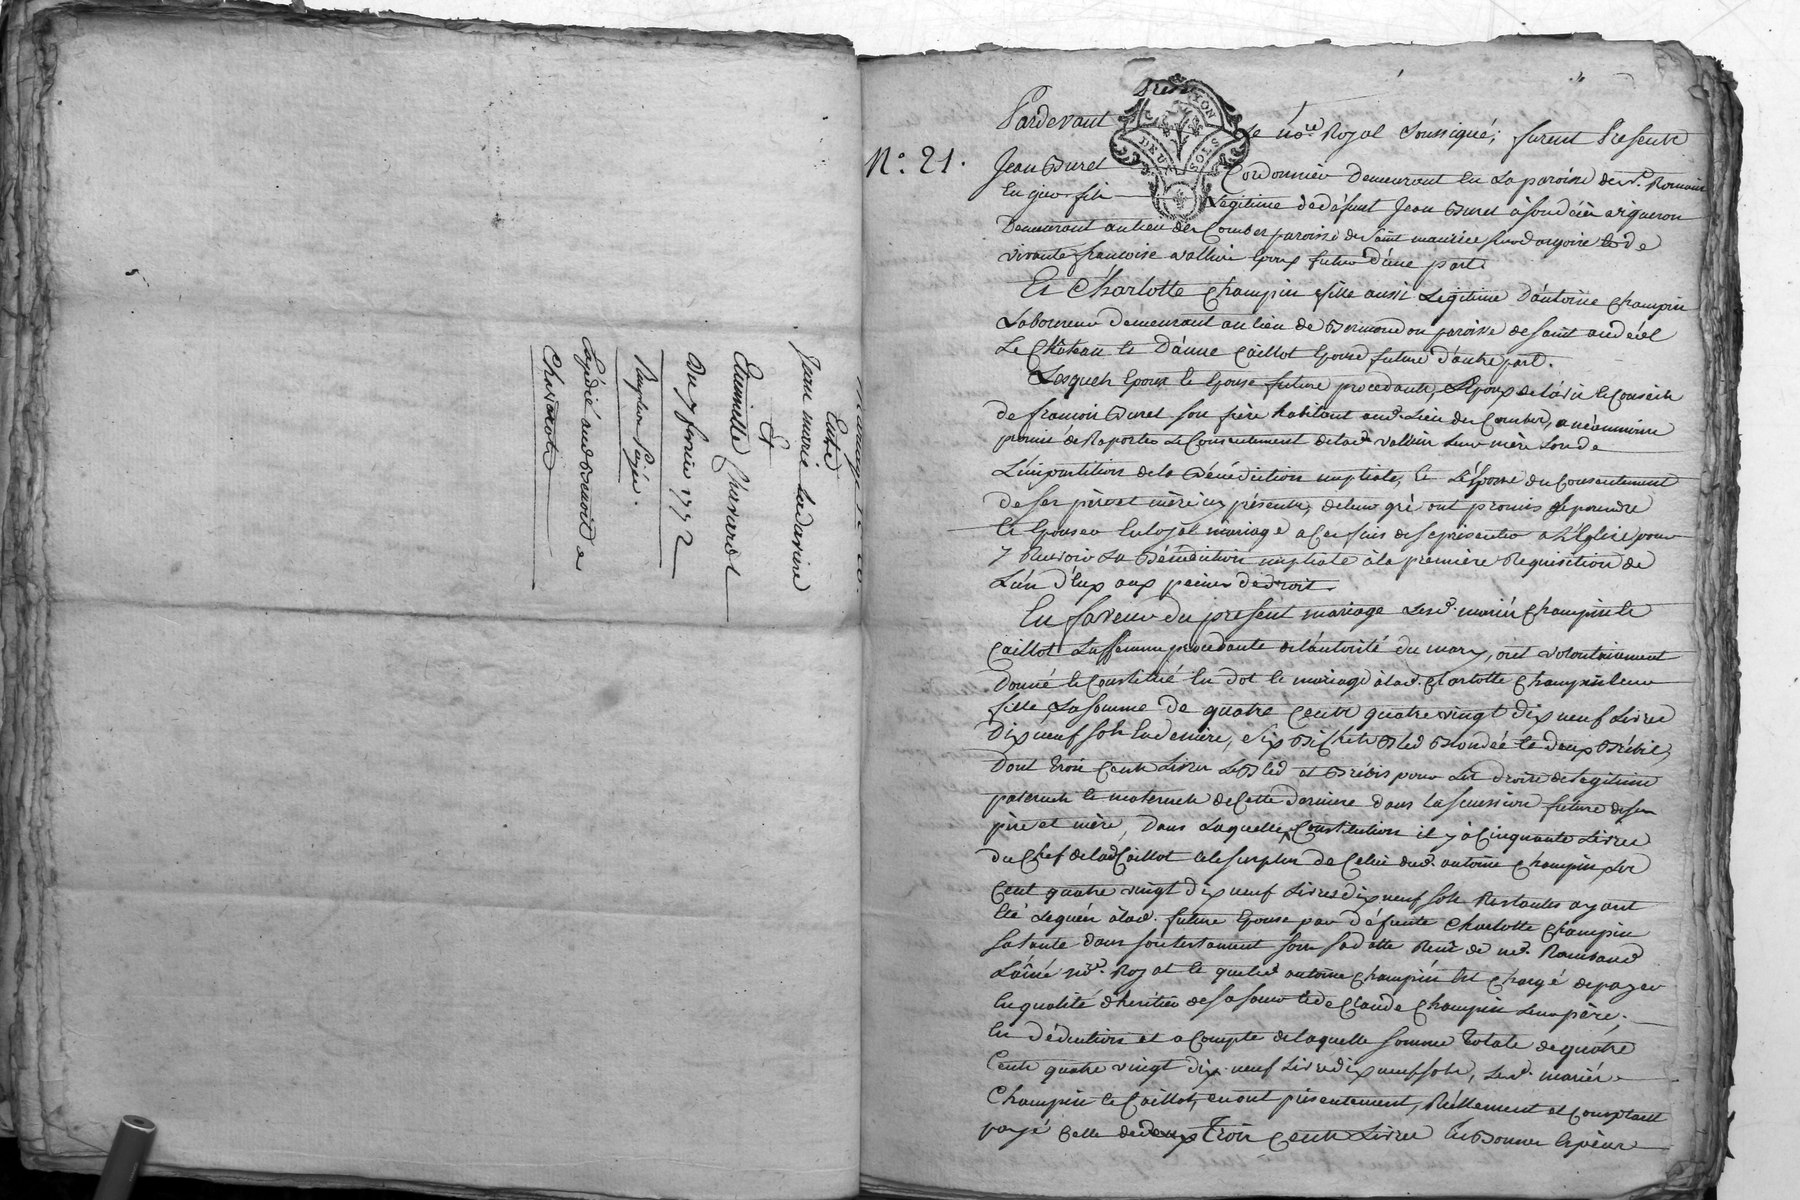 Mariage
Entre
Jean marie Ladavière
Et
Etiennette Chavard
Du 7 fevrier 1792
Payée.
Expedié audt
N.° 21.
DEUX SOLS
Pardevant le no.re Royal Soussigné; furent Presents
Jean Buret Cordonnier demeurant en la paroisse de St. Romain
en gier fils Legitime de défunt Jean Buret à son décès vigneron
demeurant au lieu des Combes paroisse de Saint maurice sur dargoire et de
vivante francoise valluis Epoux futur d'une part.
Et Charlotte Champin fille aussi Legitime d'antoine Champin
Laboureur demeurant au lieu de paroisse de saint andéol
Le Château et d'anne Caillot Epouse future d'autre part.
Lesquels Epoux et Epouse future procedants, L'Epoux de l'avis et Conseils
de francois Buret son frère habitant aud. Lieu des Combes, a néanmoins
promis de Raporter Le Consentement de lad. valluis leur mère Lors de
L'impartition de la Bénédiction nuptiale, et L'Epouse du Consentement
de ses père et mère icy présents, de leur gré ont promis se prendre
et Epouser en loyal mariage a Ces fins de se présenter a L'Eglise pour
y Recevoir La Bénédiction nuptiale à la première Requisition de
L'un d'Eux aux peines de droit.
En faveur du present mariage Lesd. mariés Champin et
Caillot La femme procedante de l'autorité du mary, ont volontairement
Donné et Constitué en dot et mariage à lad. Charlotte Champin leur
fille, La somme de quatre Cents quatre vingt dix neuf Livres
Dix neuf sols six Bichets Bled et deux Brébis,
Dont trois Cents Livres Le Bled et Brébis pour Les droits de Legitime
paternels et maternels de Cette derniere dans la succession future de ses
père et mère, dans Laquelle Constitution il y à Cinquante Livres
du Chef de lad. Caillot et le surplus de Celui dud. antoine Champin, Les
Cent quatre vingt dix neuf Livres dix neuf sols Restantes ayant
été Leguées à lad. future Epouse par défunte Charlotte Champin
sa tante dans son testament sous sa datte Reçu de me.
L'aîné no.re Royal et que led. antoine Champin est chargé de payer
en qualité d'heritier de sa soeur et de Claude Champin Leur père;
en déduction et a Compte de laquelle somme totale de quatre
Cents quatre vingt dix neuf Livres dix neuf sols, Lesd. mariés
Champin et Caillot, en ont présentement, Réellement et Comptant
payé Celle de trois Cents Livres en Bonnes Espèces